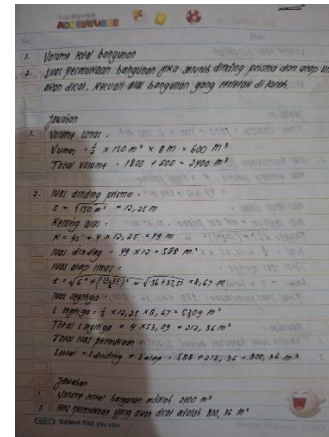 ADVENTURES
No.
Date
1. Volume total bangunan
2. Luas permukaan bangunan jika seluruh dinding prisma dan atap limas
akan dicat, kecuali alas bangunan yang terletak di tanah.
Jawaban
1. Volume limas :
Vlimas = 1/3 × 150 m² × 8 m = 600 m³
Total volume = 1800 + 600 = 2400 m³
2. Luas dinding prisma :
s = √150 m² = 12,25 m
Keliling alas :
K = 4s = 4 × 12,25 = 49 m
luas dinding = 49 × 12 = 588 m²
luas atap limas :
= 8,67 m
luas segitiga :
× 12,25 × 8,67 = 5309 m²
Total segitiga = 4 × 53,09 = 212,36 m²
Total luas permukaan :
= 588 + 212,36 = 800,36 m²
Jawaban
1. Volume total bangunan adalah 2400 m³
2. luas permukaan yang akan dicat adalah 800,36 m²
Believe that you can